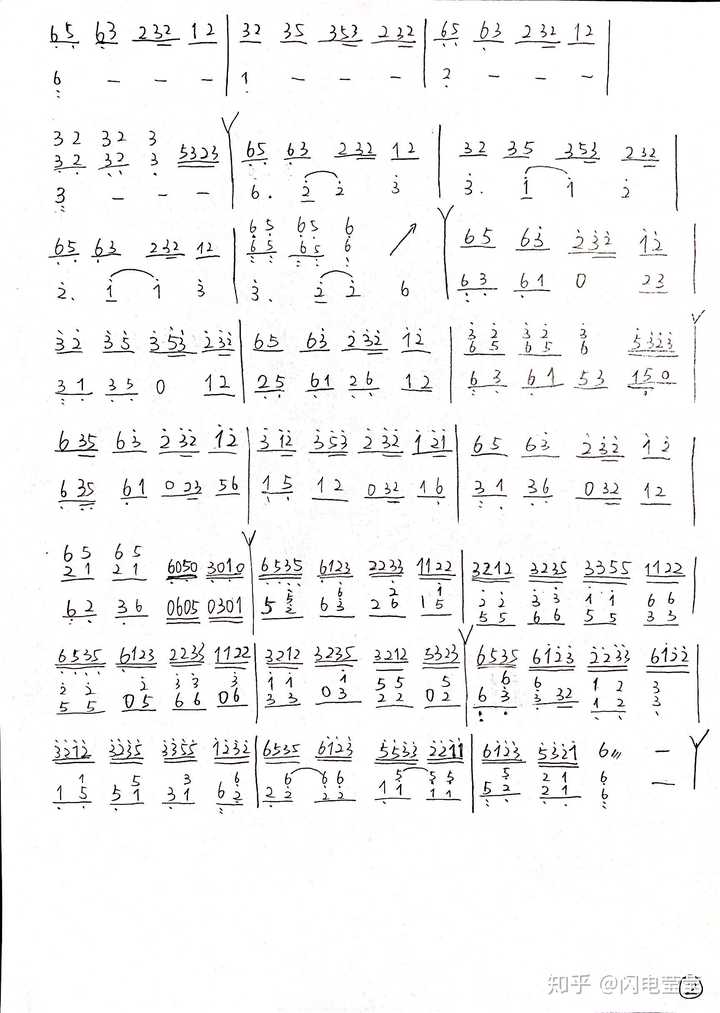 65 63 232 12 | 32 35 353 232 | 65 63 232 12 |
6 - - - | 1 - - - | 2 - - - |
32 32 3
32 32 3 5323 | 65 63 232 12 | 32 35 353 232 |
3 - - - | 6. 2 2 3 | 3. 1 1 2 |
65 65 6
65 63 232 12 | 65 65 6 ↗ | 65 63 232 12
2. 1 1 3 | 3. 2 2 6 | 63 61 0 23
32 32 3
32 35 353 232 | 65 63 232 12 | 65 65 6 5323
31 35 0 12 | 25 61 26 12 | 63 61 53 150
635 63 232 12 | 312 353 232 121 | 65 63 232 12
635 61 023 56 | 15 12 032 16 | 31 36 032 12
65 65
21 21 6050 3010 | 6535 6123 2233 1122 | 3212 3235 3355 1122
62 36 0605 0301
22 33 11 66
55 66 55 33
6535 6123 2233 1122 | 3212 3235 3212 5323 | 6535 6123 2233 6132
22 2 33 3 | 11 1 55 5
55 05 66 06 | 33 03 22 02
3212 3235 3355 1232 | 6535 6123 5533 2211 | 6123 5321 6 -
知乎 @闪电莹莹
2